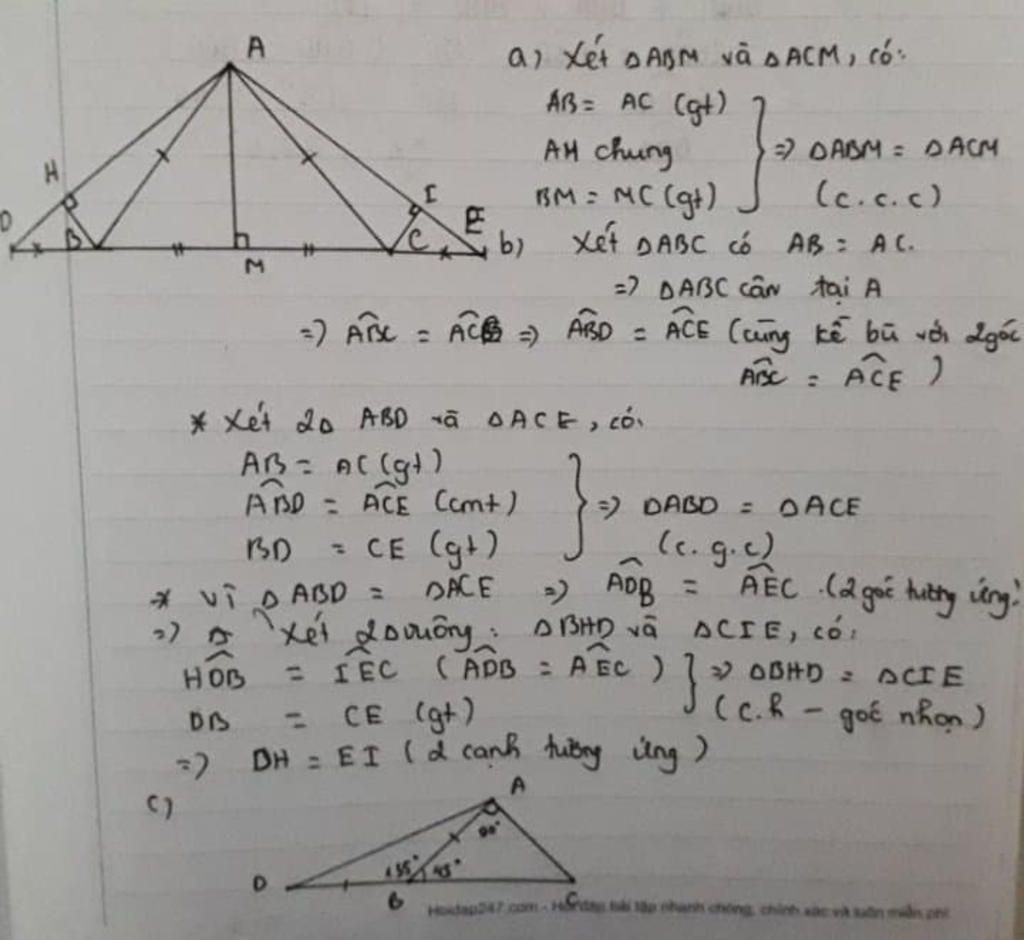 A
H
I
D
B
M
C
E
a) Xét ΔABM và ΔACM, có:
AB = AC (gt)
AH chung
BM = MC (gt)
=> ΔABM = ΔACM
(c.c.c)
b) Xét ΔABC có AB = AC.
=> ΔABC cân tại A
=> ABC = AC => ABD = ACE (cùng kề bù với 2 góc
ABC = ACE )
* Xét 2Δ ABD và ΔACE, có:
AB = AC (gt)
ABD = ACE (cmt)
BD = CE (gt)
=> ΔABD = ΔACE
(c.g.c)
* Vì ΔABD = ΔACE => ADB = AEC (2 góc tương ứng)
=> Δ Xét 2Δ vuông: ΔBHD và ΔCIE, có:
HDB = IEC (ADB = AEC )
DB = CE (gt)
=> ΔBHD = ΔCIE
(c.h - góc nhọn)
=> DH = EI (2 cạnh tương ứng)
c)
A
90°
135° 45°
D
B
C
Hoidap247.com - Hỏi đáp bài tập nhanh chóng, chính xác và luôn miễn phí